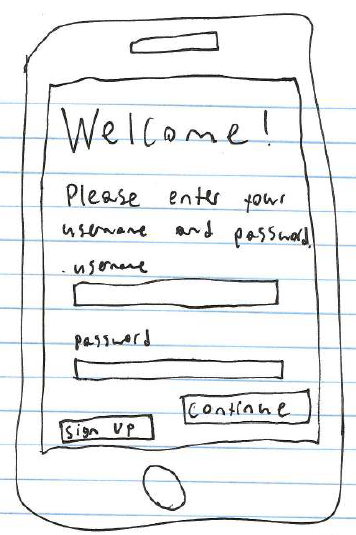 Welcome!
Please enter your
username and password.
username
password
Continue
Sign UP